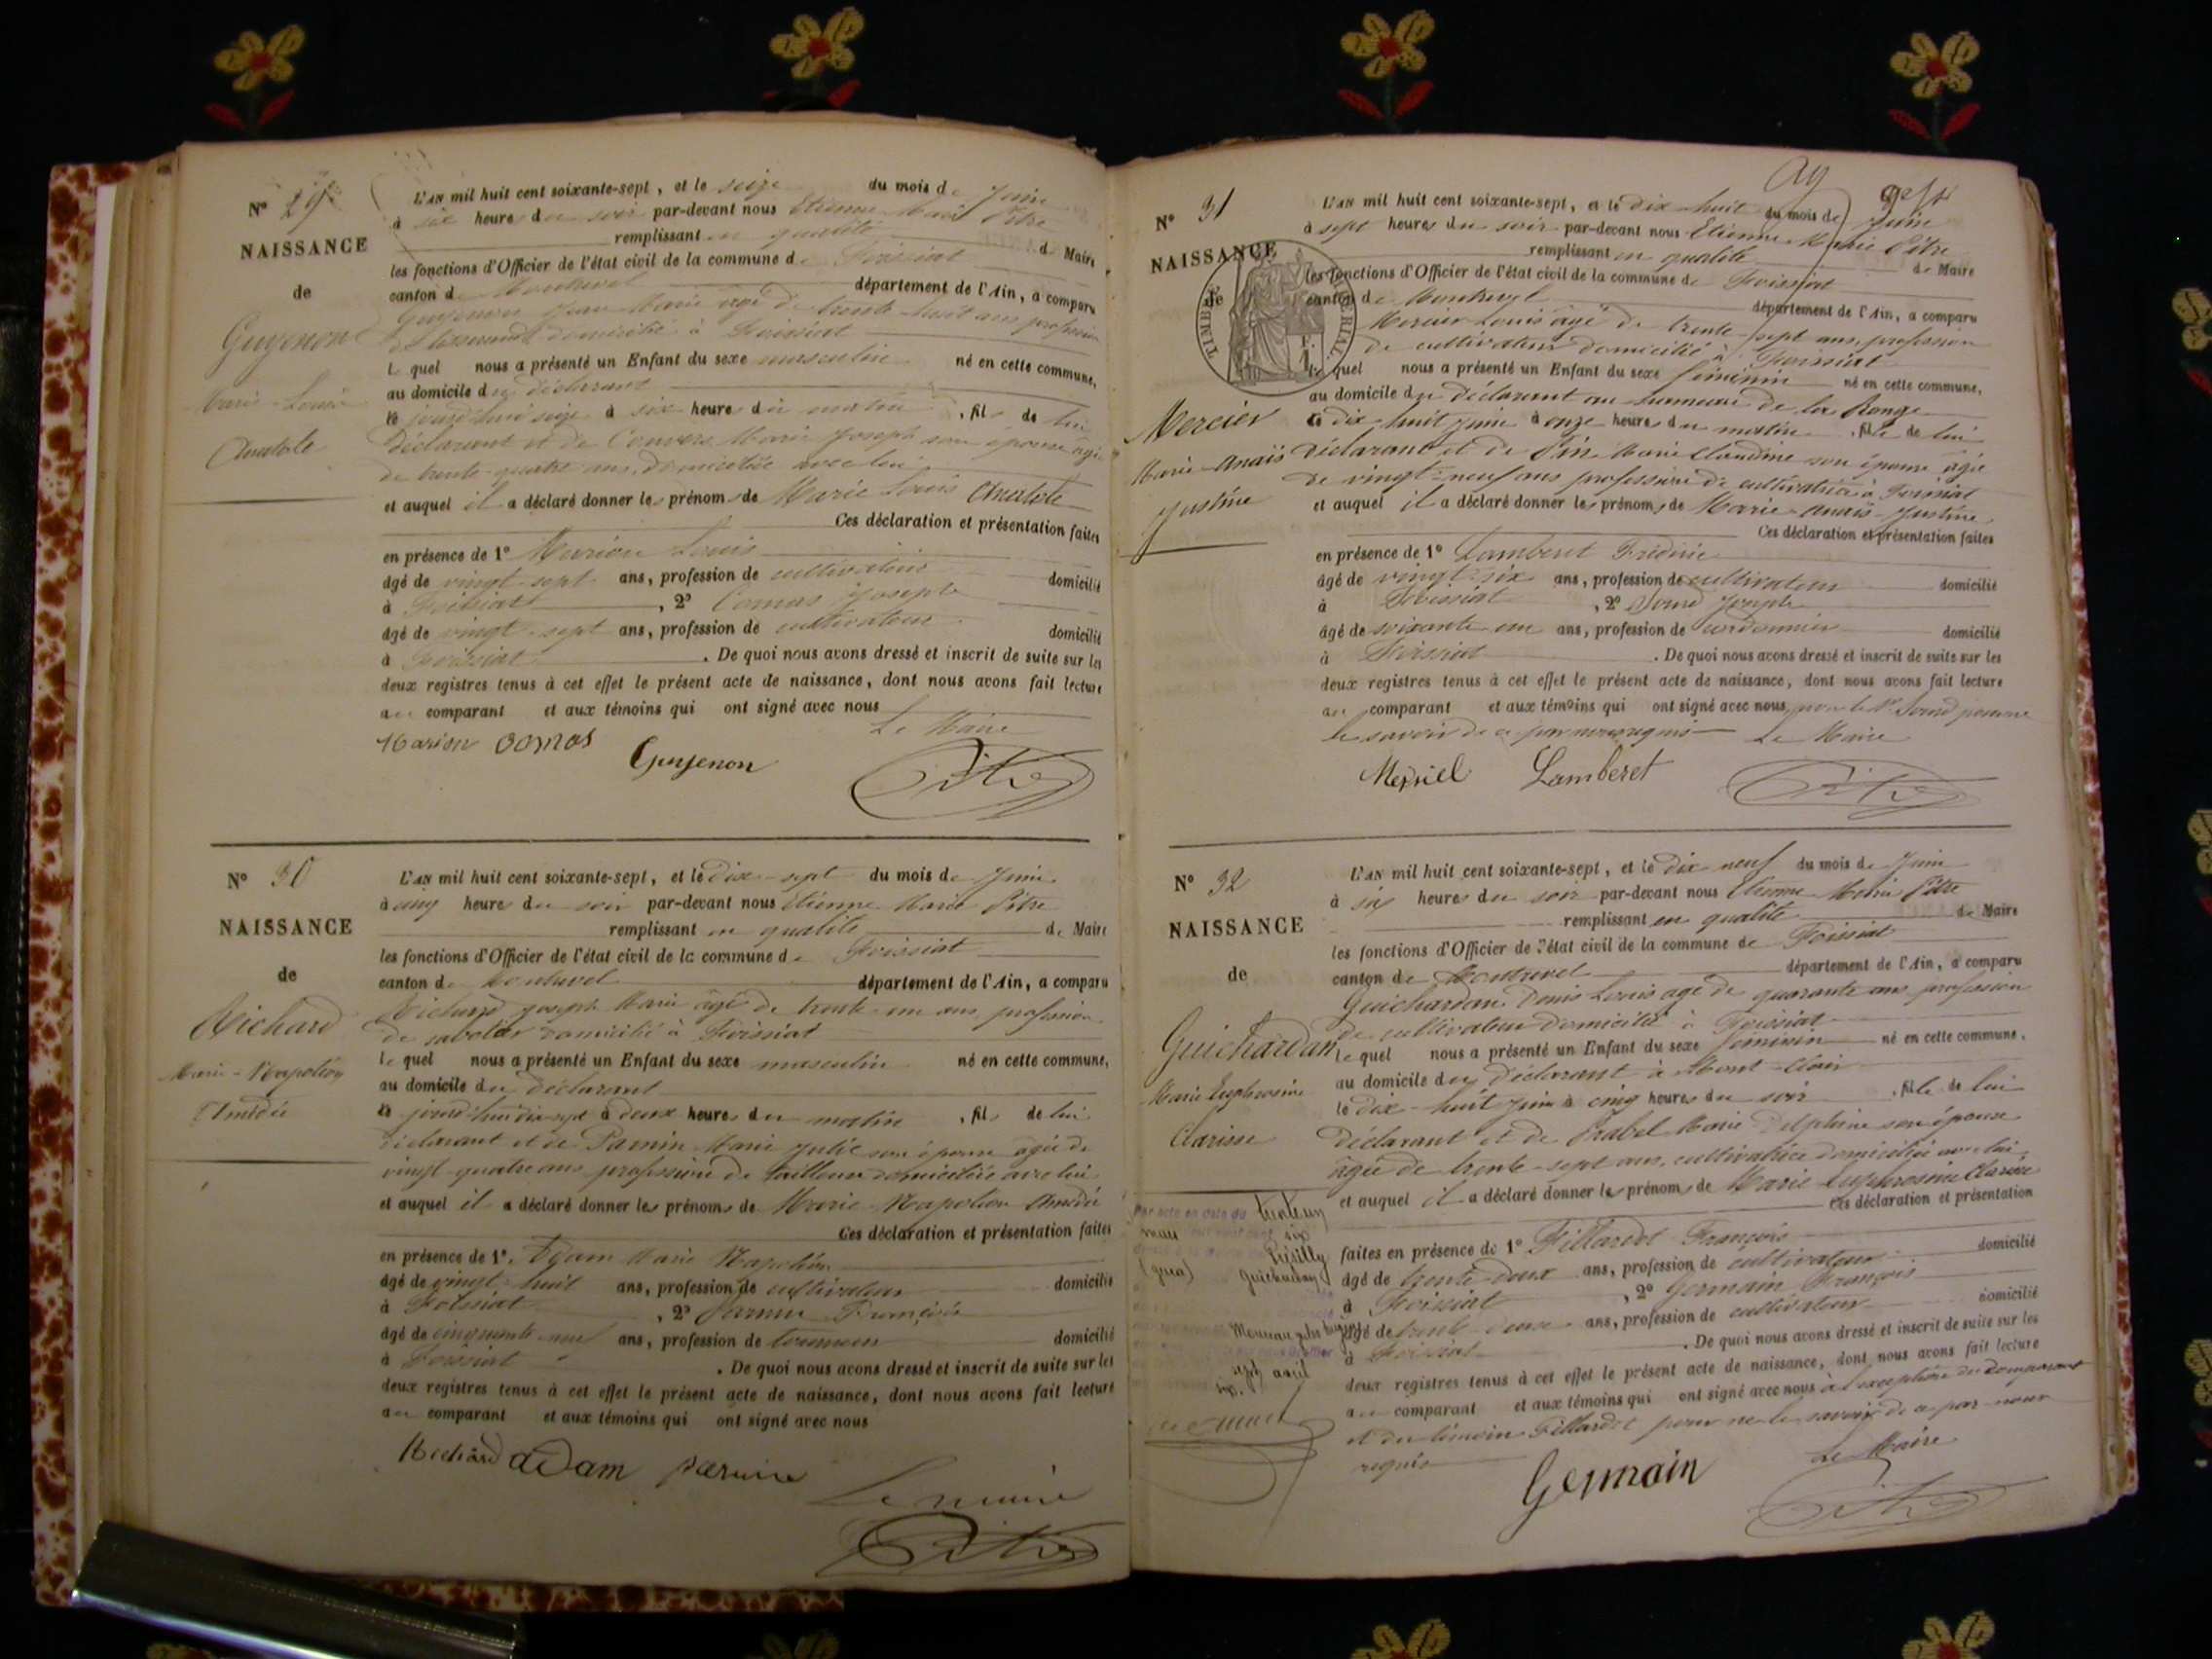 N° 29
NAISSANCE
de
Guyenon
Marie-Louis
Anatole
L'AN mil huit cent soixante-sept, et le seize du mois de Juin
à six heures du soir par-devant nous Etienne Marie Pitre
remplissant en qualité de Maire
les fonctions d'Officier de l'état civil de la commune de Foissiat
canton de Montrevel département de l'Ain, a comparu
Guyenon Jean Marie âgé de trente-huit ans profession
de domicilié à Foissiat
le quel nous a présenté un Enfant du sexe masculin né en cette commune,
au domicile du déclarant
le jourd'hui seize à six heures du matin, fils de lui
Déclarant et de Convers Marie Joseph son épouse âgée
de trente-quatre ans, domiciliée avec lui
et auquel il a déclaré donner les prénoms de Marie Louis Anatole
Ces déclaration et présentation faites
en présence de 1° Marion Louis
âgé de vingt-sept ans, profession de cultivateur domicilié
à Foissiat, 2° Comas Joseph
âgé de vingt-sept ans, profession de cultivateur domicilié
à Foissiat. De quoi nous avons dressé et inscrit de suite sur les
deux registres tenus à cet effet le présent acte de naissance, dont nous avons fait lecture
au comparant et aux témoins qui ont signé avec nous
Le Maire
Marion Comas Guyenon Pitre
N° 30
NAISSANCE
de
Richard
Marie-Napoléon
Amédée
L'AN mil huit cent soixante-sept, et le Dix-sept du mois de Juin
à cinq heures du soir par-devant nous Etienne Marie Pitre
remplissant en qualité de Maire
les fonctions d'Officier de l'état civil de la commune de Foissiat
canton de Montrevel département de l'Ain, a comparu
Richard Joseph Marie âgé de trente-un ans, profession
de sabotier domicilié à Foissiat
le quel nous a présenté un Enfant du sexe masculin né en cette commune,
au domicile du déclarant
le jourd'hui dix-sept à deux heures du matin, fils de lui
déclarant et de Marie Julie son épouse âgée de
vingt-quatre ans profession de tailleuse domiciliée avec lui
et auquel il a déclaré donner les prénoms de Marie-Napoléon Amédée
Ces déclaration et présentation faites
en présence de 1° Adam Marie Napoléon
âgé de vingt-huit ans, profession de cultivateur domicilié
à Foissiat, 2° François
âgé de cinquante-neuf ans, profession de domicilié
à Foissiat. De quoi nous avons dressé et inscrit de suite sur les
deux registres tenus à cet effet le présent acte de naissance, dont nous avons fait lecture
au comparant et aux témoins qui ont signé avec nous
Richard adam
Le maire
Pitre
N° 31
NAISSANCE
de
TIMBRE IMPÉRIAL
Mercier
Marie-Anaïs
Justine
L'AN mil huit cent soixante-sept, et le dix-huit du mois de Juin
à sept heures du soir par-devant nous Etienne Marie Pitre
remplissant en qualité de Maire
les fonctions d'Officier de l'état civil de la commune de Foissiat
canton de Montrevel département de l'Ain, a comparu
Mercier Louis âgé de trente-sept ans, profession
de cultivateur domicilié à Foissiat
le quel nous a présenté un Enfant du sexe féminin né en cette commune,
au domicile du Déclarant au hameau de la Ronge
le dix-huit juin à onze heures du matin, fille de lui
Déclarant et de Pin Marie Claudine son épouse âgée
de vingt-neuf ans profession de cultivatrice à Foissiat
et auquel il a déclaré donner les prénoms de Marie-Anaïs-Justine
Ces déclaration et présentation faites
en présence de 1° Lamberet Frédéric
âgé de vingt-six ans, profession de cultivateur domicilié
à Foissiat, 2° Joseph
âgé de soixante un ans, profession de cordonnier domicilié
à Foissiat. De quoi nous avons dressé et inscrit de suite sur les
deux registres tenus à cet effet le présent acte de naissance, dont nous avons fait lecture
au comparant et aux témoins qui ont signé avec nous, pour ne
le savoir de ce par nous requis Le Maire
Lamberet Pitre
N° 32
NAISSANCE
de
Guichardan
Marie Euphrosine
Clarisse
L'AN mil huit cent soixante-sept, et le Dix neuf du mois de Juin
à six heures du soir par-devant nous Etienne Marie Pitre
remplissant en qualité de Maire
les fonctions d'Officier de l'état civil de la commune de Foissiat
canton de Montrevel département de l'Ain, a comparu
Guichardan Denis Louis âgé de quarante ans profession
de cultivateur domicilié à Foissiat
le quel nous a présenté un Enfant du sexe féminin né en cette commune,
au domicile du Déclarant à Mont-Clair
le dix-huit juin à cinq heures du soir, fille de lui
Déclarant et de Prabel Marie Delphine son épouse
âgée de trente-sept ans, cultivatrice domiciliée avec lui
et auquel il a déclaré donner les prénoms de Marie Euphrosine Clarisse
Ces déclaration et présentation
faites en présence de 1° Fillardet François domicilié
âgé de trente-deux ans, profession de cultivateur
à Foissiat, 2° Germain François
âgé de trente-deux ans, profession de cultivateur domicilié
à Foissiat. De quoi nous avons dressé et inscrit de suite sur les
deux registres tenus à cet effet le présent acte de naissance, dont nous avons fait lecture
au comparant et aux témoins qui ont signé avec nous à l'exception du comparant
et du témoin Fillardet pour ne le savoir de ce par nous
requis Le Maire
Germain Pitre